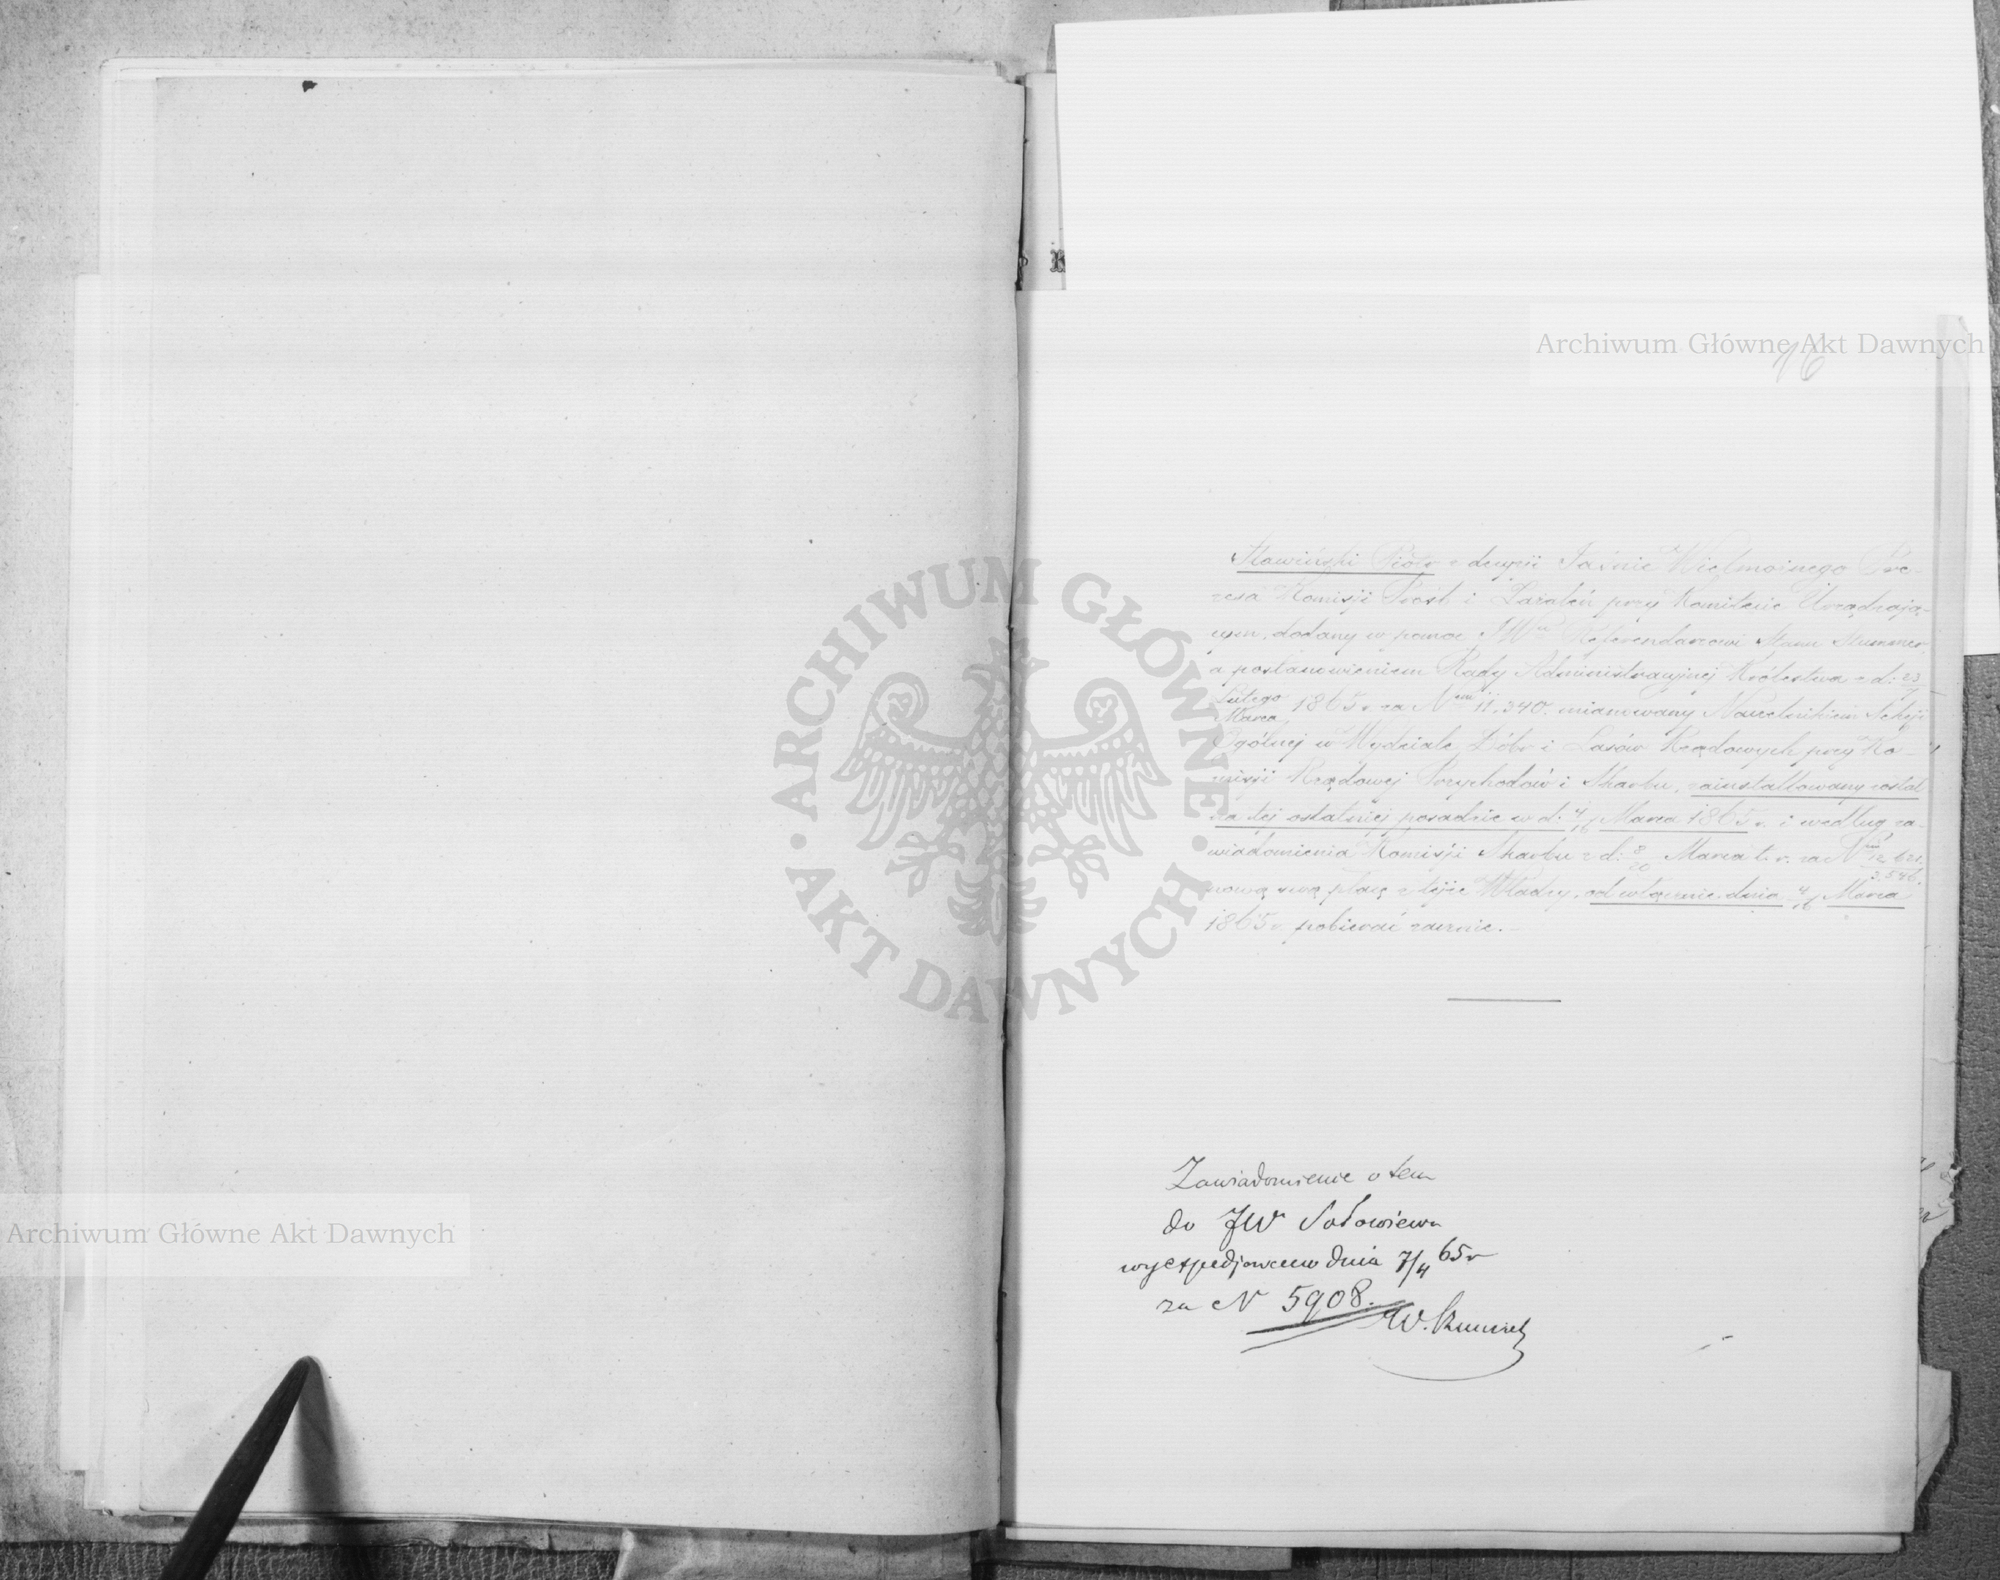 Archiwum Główne Akt Dawnych
16
Sławiński Piotr z decyzji Jaśnie Wielmożnego Pre-
zesa Komisji Prośb i Zażaleń przy Komitecie Urządzają-
cym, dodany w pomoc JW Referendarzowi Stanu Stummer,
a postanowieniem Rady Administracyjnej Królestwa z d: 23
Lutego
Marca 1865 r. za N 11.340. mianowany Naczelnikiem Sekcji
Ogólnej w Wydziale Dóbr i Lasów Rządowych przy Ko-
misji Rządowej Przychodów i Skarbu, zainstallowany został
na tej ostatniej posadzie w d: 4/16 Marca 1865 r. i według za-
wiadomienia Komisji Skarbu z d: 8/20 Marca t. r. za N
nową swą płacę z tejże Władzy, od włącznie dnia 4/16 Marca
1865 r. pobierać zacznie.
Zawiadomienie o tem
do JW Sołowiewa
wyexpedjowano dnia 7/4 65 r
za N 5908.
ARCHIWUM GŁÓWNE AKT DAWNYCH
Archiwum Główne Akt Dawnych